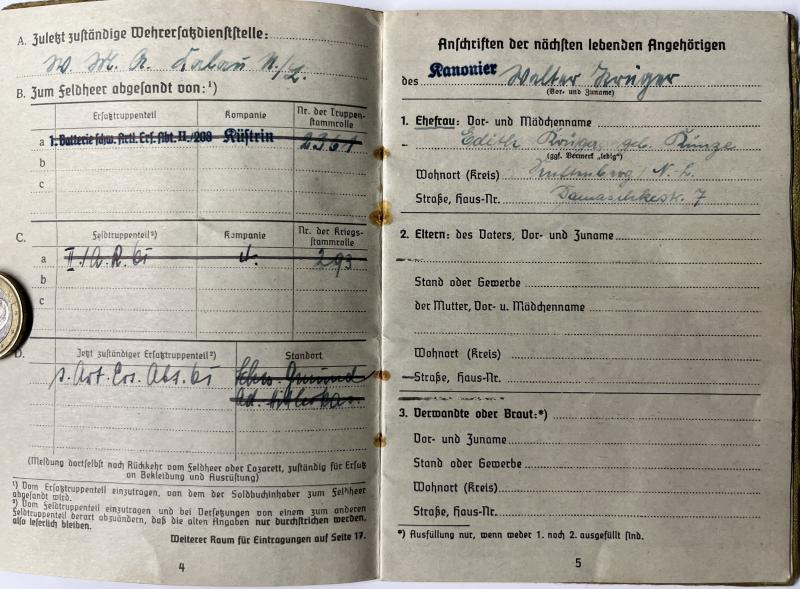 A. Zuletzt zuständige Wehrersatzdienststelle:
W. M. A. Calau N./L.
B. Zum Feldheer abgesandt von:¹)
Ersatztruppenteil Kompanie Nr. der Truppen-
stammrolle
a 1. Batterie schw. Artl. Ers. Abt. II./208 Küstrin 2361
b
c
C. Feldtruppenteil²) Kompanie Nr. der Kriegs-
stammrolle
a II./A. R. 61 4. 293
b
c
D. Jetzt zuständiger Ersatztruppenteil²) Standort
s. Art. Ers. Abt. 61 Schw. Gmünd
(Meldung dortselbst nach Rückkehr vom Feldheer oder Lazarett, zuständig für Ersatz
an Bekleidung und Ausrüstung)
¹) Vom Ersatztruppenteil einzutragen, von dem der Soldbuchinhaber zum Feldheer
abgesandt wird.
²) Vom Feldtruppenteil einzutragen und bei Versetzungen von einem zum anderen
Feldtruppenteil derart abzuändern, daß die alten Angaben nur durchstrichen werden,
also leserlich bleiben.
Weiterer Raum für Eintragungen auf Seite 17.
4
Anschriften der nächsten lebenden Angehörigen
des Kanonier Walter Krüger
(Vor- und Zuname)
1. Ehefrau: Vor- und Mädchenname
Edith Krüger geb. Kunze
(ggf. Vermerk „ledig")
Wohnort (Kreis) Senftenberg / N.-L.
Straße, Haus-Nr. Damaschkestr. 7
2. Eltern: des Vaters, Vor- und Zuname
Stand oder Gewerbe
der Mutter, Vor- u. Mädchenname
Wohnort (Kreis)
Straße, Haus-Nr.
3. Verwandte oder Braut:*)
Vor- und Zuname
Stand oder Gewerbe
Wohnort (Kreis)
Straße, Haus-Nr.
*) Ausfüllung nur, wenn weder 1. noch 2. ausgefüllt sind.
5